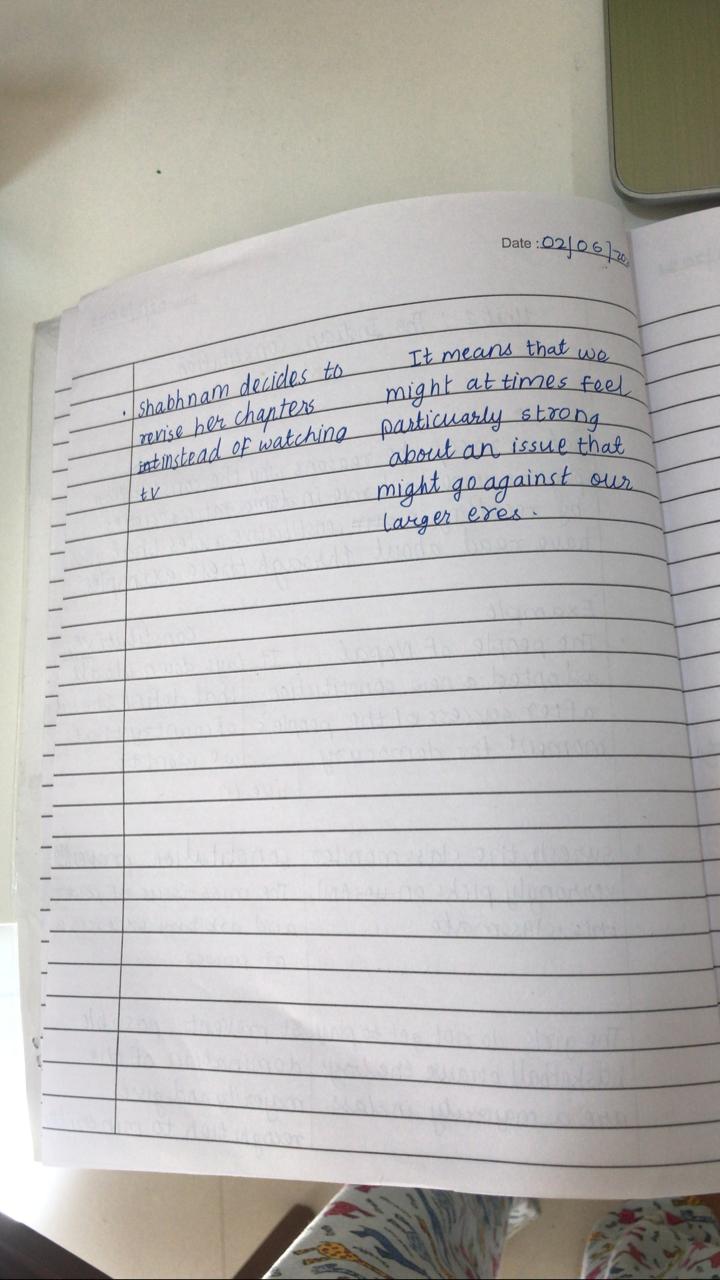 Date : 02/06/20
. Shabhnam decides to
revise her chapters
instead of watching
tv
It means that we
might at times feel
particuarly strong
about an issue that
might go against our
larger eres.